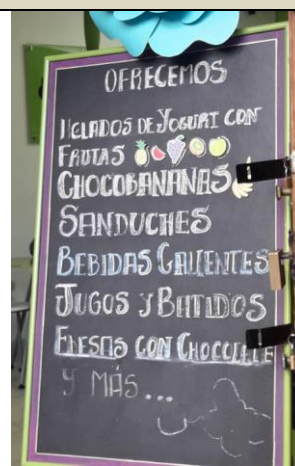 OFRECEMOS
HELADOS DE YOGURT CON
FRUTAS
CHOCOBANANAS
SANDUCHES
BEBIDAS CALIENTES
JUGOS Y BATIDOS
FRESAS CON CHOCOLATE
Y MÁS...